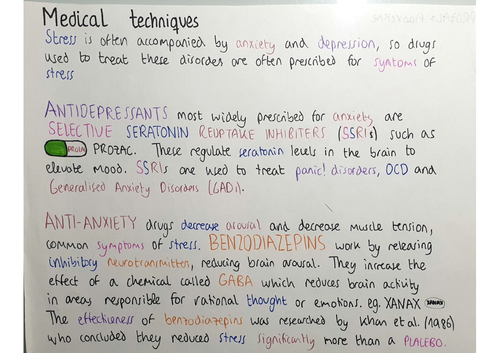 Medical techniques
Stress is often accompanied by anxiety and depression, so drugs
used to treat these disorders are often prescribed for symtoms of
stress
ANTIDEPRESSANTS most widely prescribed for anxiety are
SELECTIVE SERATONIN REUPTAKE INHIBITERS (SSRIs) such as
PROZAC. These regulate seratonin levels in the brain to
elevate mood. SSRIs are used to treat panic! disorders, OCD and
Generalised Anxiety Disorders (GADs).
ANTI-ANXIETY drugs decrease arousal and decrease muscle tension,
common symptoms of stress. BENZODIAZEPINS work by releasing
inhibitory neurotransmitter, reducing brain arousal. They increase the
effect of a chemical called GABA which reduces brain activity
in areas responsible for rational thought or emotions. eg. XANAX XANAX
The effectiveness of benzodiazepins was researched by Khan et al. (1986)
who concluded they reduced stress significantly more than a PLACEBO.